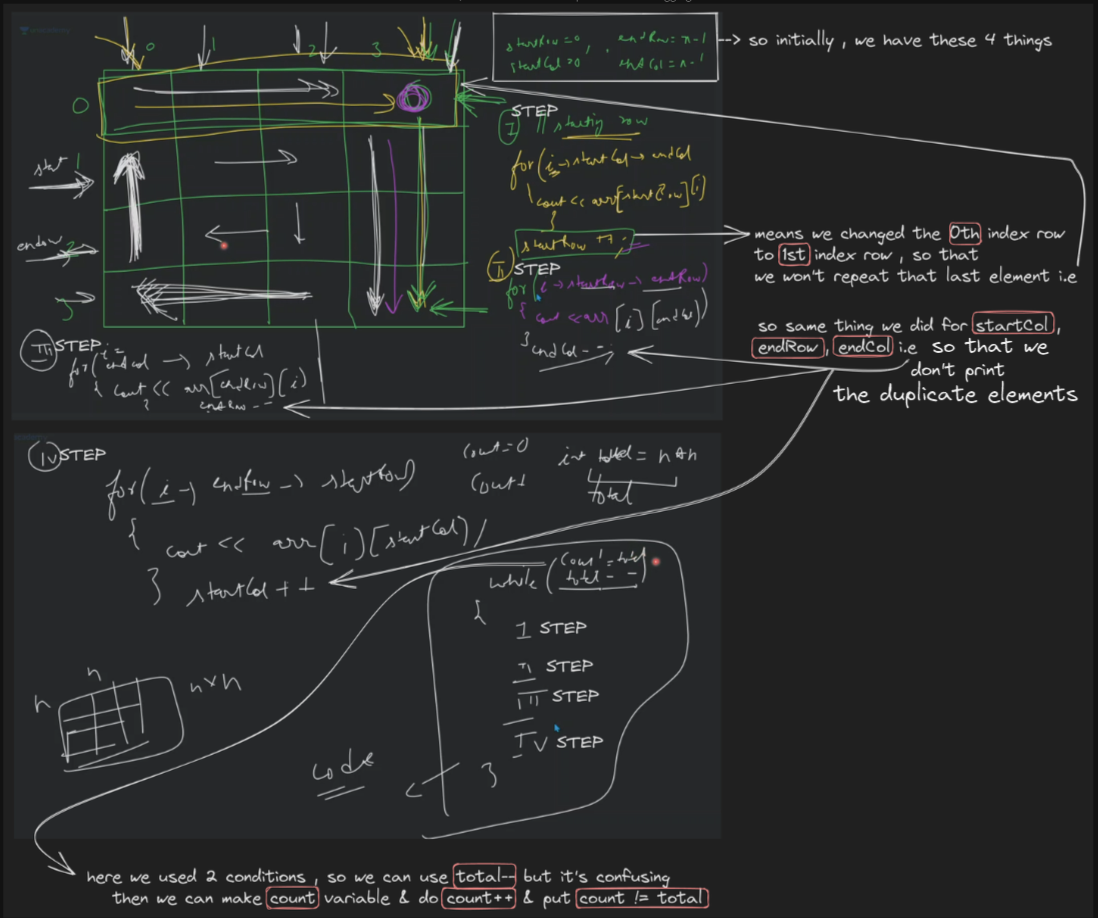 startRow = 0 , endRow = n-1
startCol = 0 , endCol = n-1
--> so initially , we have these 4 things
0 1 2 3
0
start 1
endrow 2
3
STEP
I // starting row
for( i → startCol → endCol
cout << arr[startRow][i]
}
startRow ++ ;
means we changed the 0th index row
to 1st index row , so that
we won't repeat that last element i.e
II STEP
for( i → startRow → endRow)
{ cout << arr [i] [endCol]
} endCol -- ;
so same thing we did for startCol ,
endRow , endCol i.e so that we
don't print
the duplicate elements
III STEP
for( i = endCol → startCol
{ cout << arr[endRow][i]
} endRow --
IV STEP
for( i → endRow → startRow)
{
cout << arr[i][startCol]
} startCol ++
count = 0
int total = n*n
total
while (count != total
total --)
{
I STEP
II STEP
III STEP
IV STEP
}
n
n
n×n
code
here we used 2 conditions , so we can use total-- but it's confusing
then we can make count variable & do count++ & put count != total